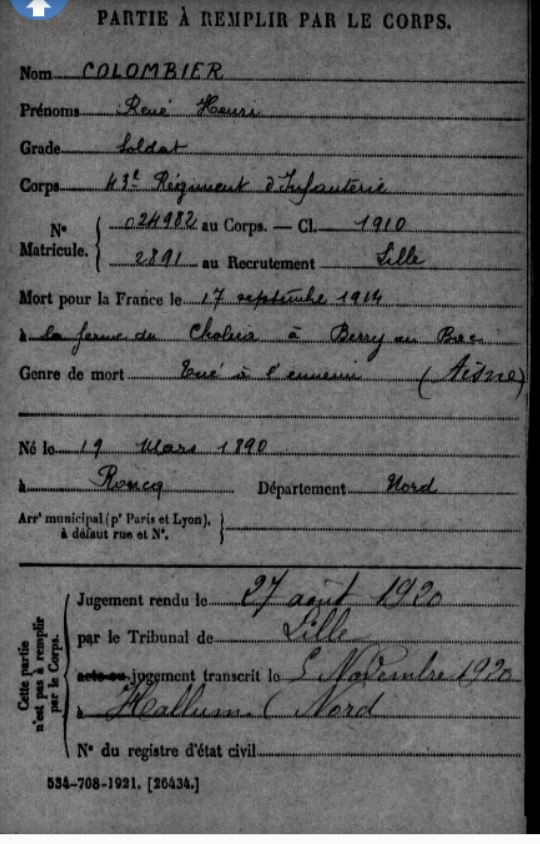 PARTIE À REMPLIR PAR LE CORPS.
Nom COLOMBIER
Prénoms René Henri
Grade Soldat
Corps 43e Régiment d'Infanterie
No Matricule. { 024982 au Corps. — Cl. 1910
2891 au Recrutement Lille
Mort pour la France le 17 septembre 1914
à la ferme du à Berry au Bac
Genre de mort Tué à l'ennemi (Aisne)
Né le 19 Mars 1890
à Roncq Département Nord
Arrt municipal (pr Paris et Lyon), à défaut rue et No. }
Cette partie n'est pas à remplir par le Corps.
Jugement rendu le 27 août 1920
par le Tribunal de Lille
acte ou jugement transcrit le 5 Novembre 1920
à Halluin (Nord
No du registre d'état civil
534-708-1921. [26434.]